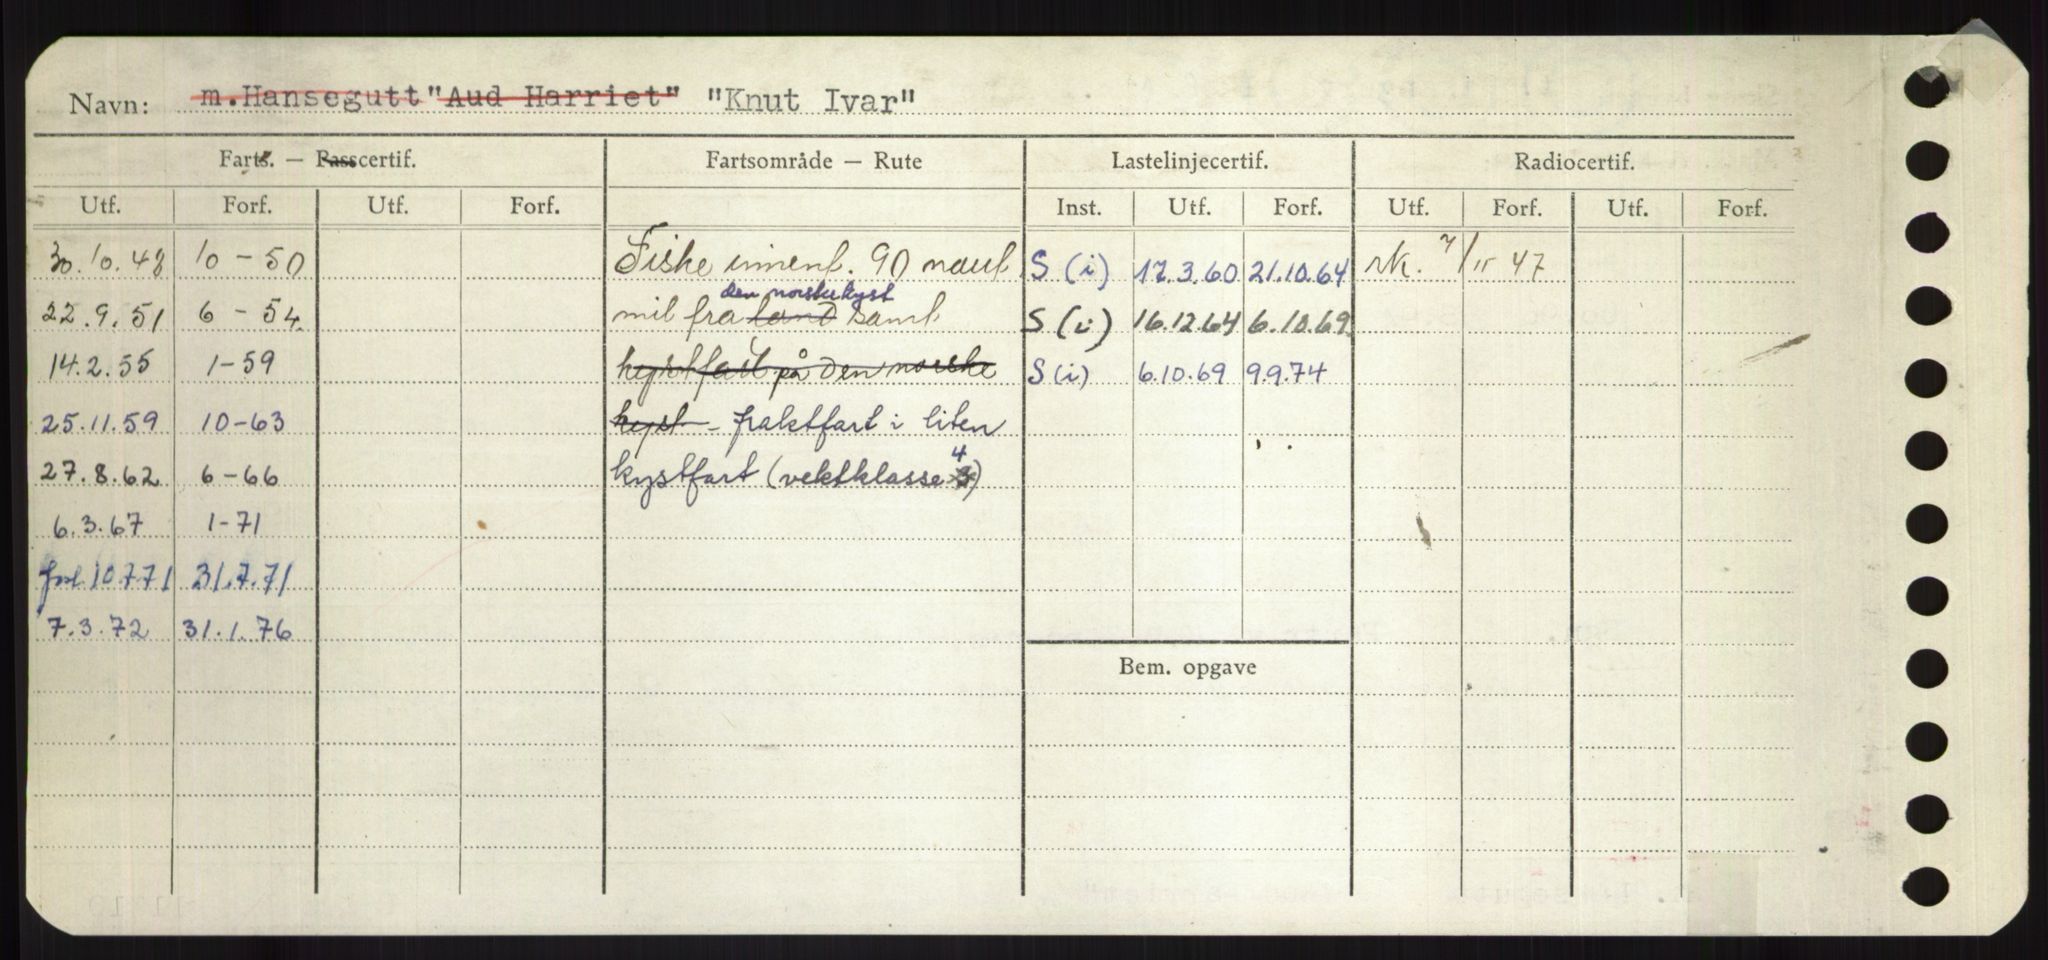 Navn: m. Hansegutt "Aud Harriet" "Knut Ivar"
Farts. — Passcertif. Fartsområde — Rute Lastelinjecertif. Radiocertif.
Utf. Forf. Utf. Forf. Inst. Utf. Forf. Utf. Forf. Utf. Forf.
30.10.48 10 - 50 Fiske innenf. 90 naut S (i) 17.3.60 21.10.64 rk. 7/11 47
den norske kyst
22.9.51 6 - 54 mil fra land samt S (i) 16.12.64 6.10.69
14.2.55 1-59 kystfart på den norske S (i) 6.10.69 9.9.74
25.11.59 10-63 kyst - fraktfart i liten
27.8.62 6-66 kystfart (vektklasse 3) 4
6.3.67 1-71
forl. 10.7.71 31.7.71
7.3.72 31.1.76
Bem. opgave